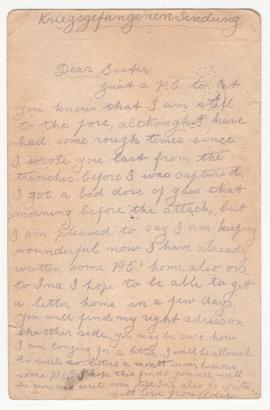 Kriegsgefangenen Sendung
Dear Sister
just a P.C. to let
you know that I am still
to the fore, although I have
had some rough times since
I wrote you last from the
trenches before I was captured,
I got a bad dose of gass that
morning before the attack, but
I am pleased to say I am keeping
wounderful now I have already
written some P.C.s home also one
to Ina I hope to be able to get
a letter home in a few days.
You will find my right adress on
the other side, you may be sure how
I am longing for a letter, I will be allowed
to write two letters a month in my
some P.C.s I hope this finds you all well
be sure and write soon tell Ina also to write
with love from